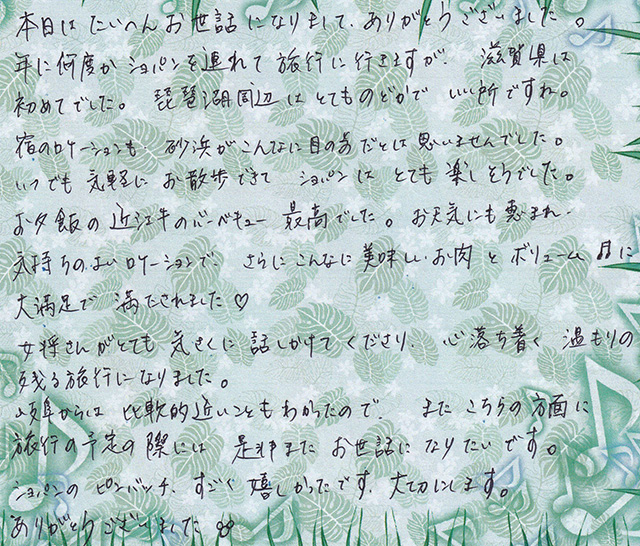 本日は たいへん お世話に なりまして、ありがとうございました。
年に何度か ショパンを連れて 旅行に 行きますが、 滋賀県は
初めてでした。 琵琶湖周辺はとてものどかで いい所ですね。
宿のロケーションも、 砂浜がこんなに目の前だとは思いませんでした。
いつでも 気軽に お散歩できて ショパンは とても 楽しそうでした。
お夕飯の近江牛のバーベキュー 最高でした。お天気にも恵まれ、
気持ちのよいロケーションで、 さらにこんなに美味しいお肉とボリューム♬に
大満足で 満たされました♡
女将さんがとても 気さくに 話しかけて くださり、 心落ち着く 温もりの
残る旅行になりました。
岐阜からは 比較的近いこともわかったので、 また こちらの方面に
旅行の予定の際には 是非また お世話に なりたいです。
ショパンの ピンバッチ、すごく嬉しかったです、大切にします。
ありがとうございました